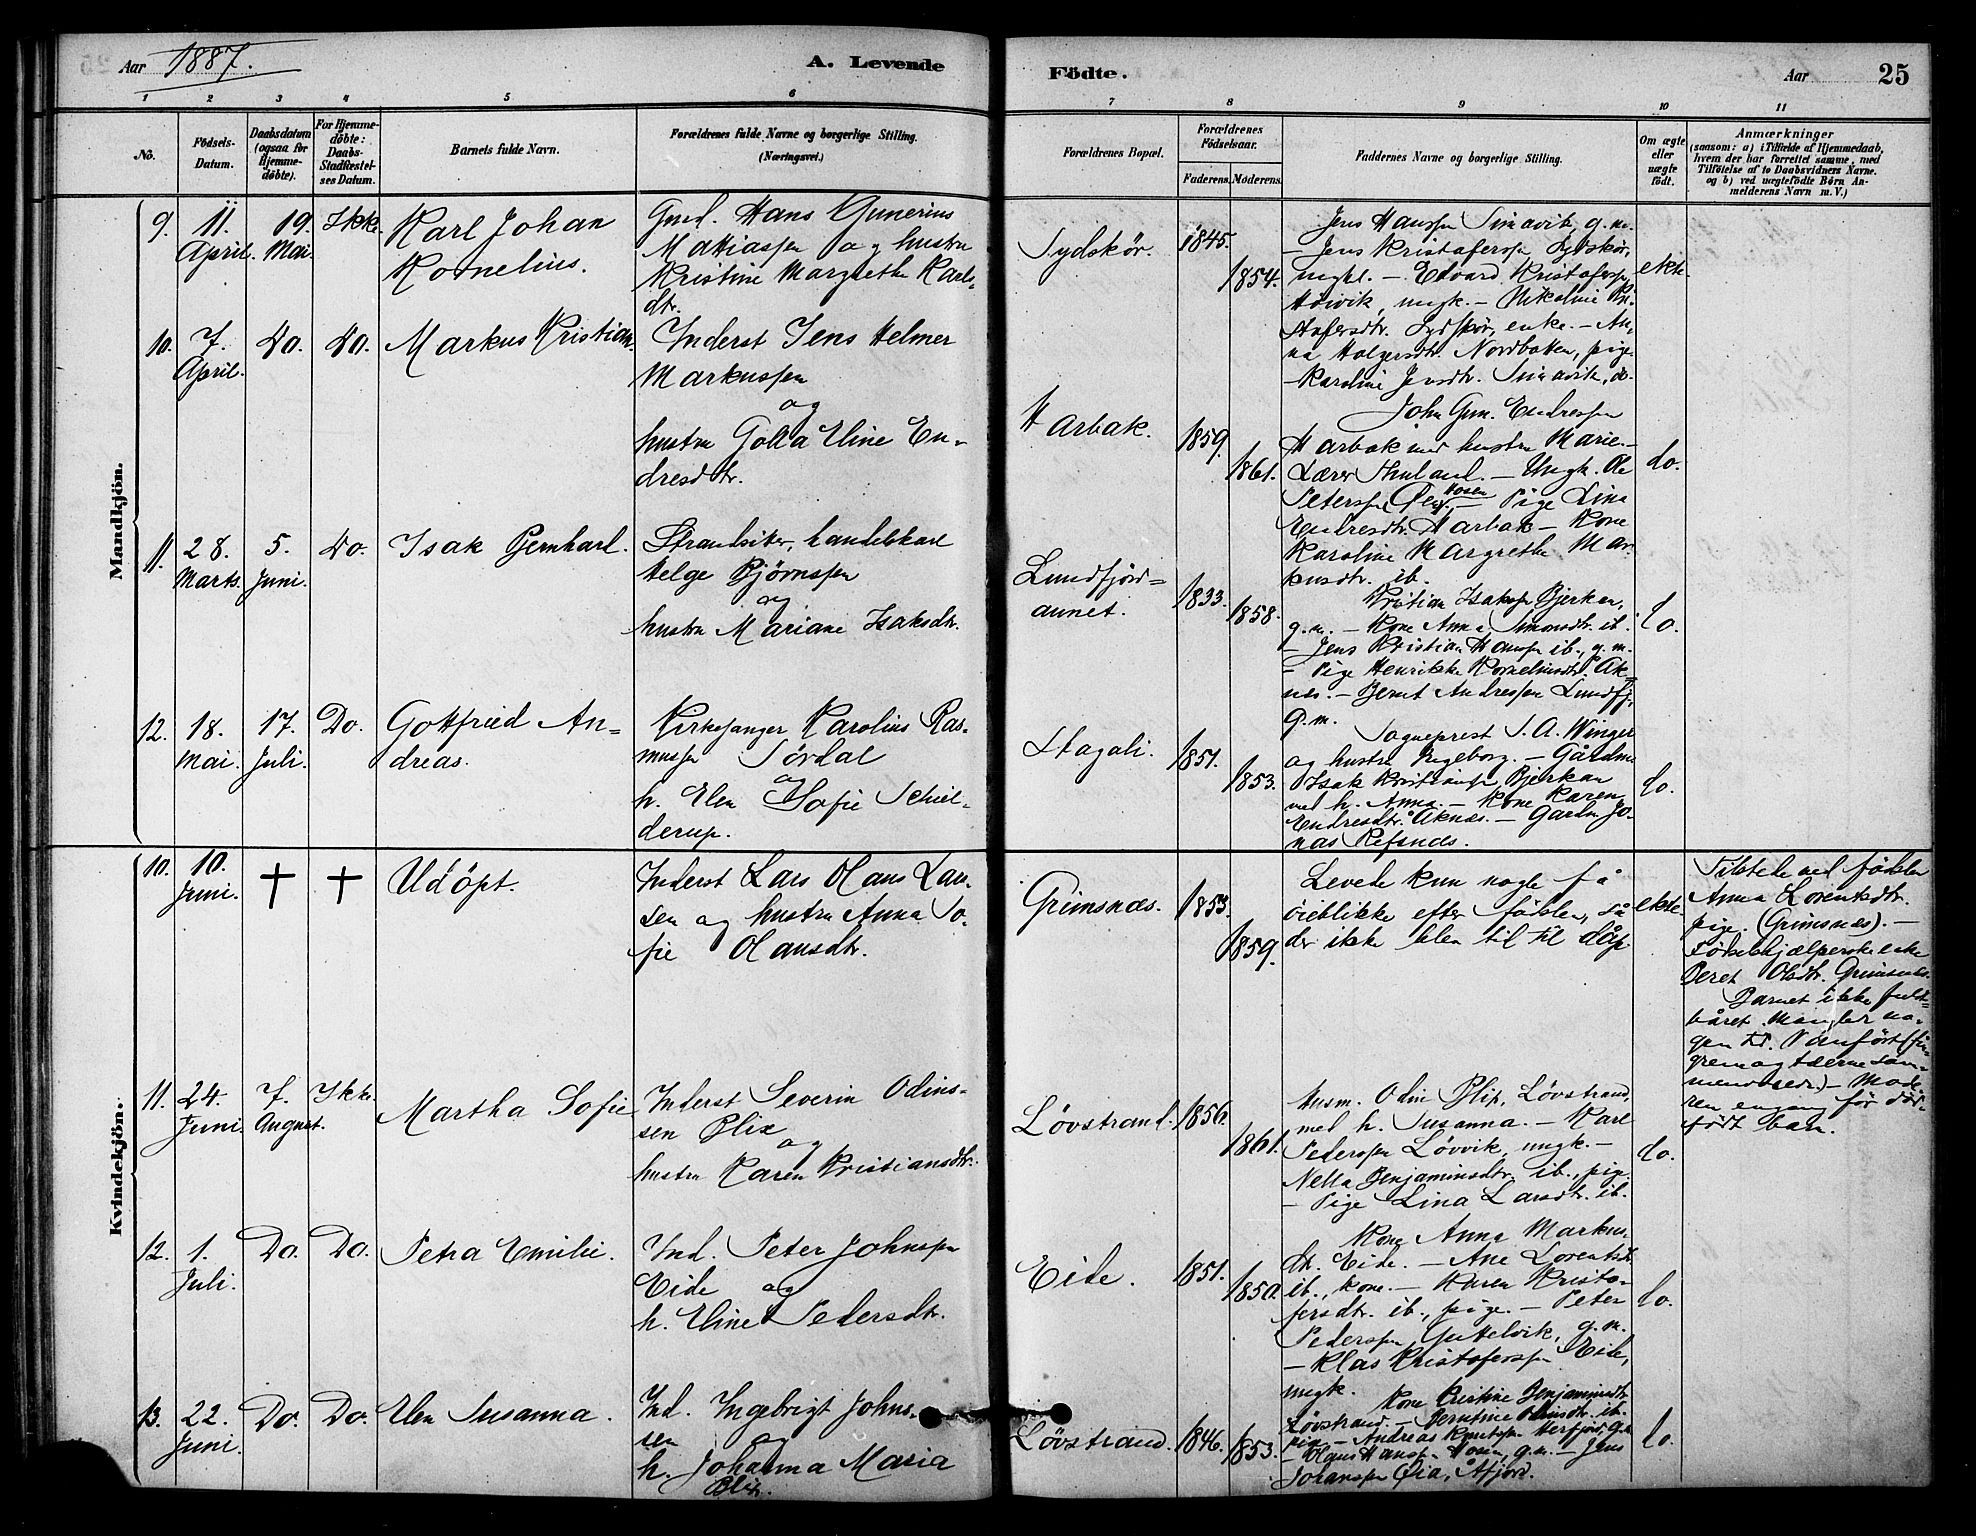 Aar 1887.
A. Levende
Födte.
Aar
25
1 2 3 4 5 6 7 8 9 10 11
No.
Födsels-
Datum.
Daabsdatum
(ogsaa for
Hjemme-
döbte).
For Hjemme-
döbte:
Daabs-
Stadfæstel-
ses Datum.
Barnets fulde Navn.
Forældrenes fulde Navne og borgerlige Stilling.
(Næringsvei.)
Forældrenes Bopæl.
Forældrenes
Födselsaar.
Faderens. Moderens.
Faddernes Navne og borgerlige Stilling.
Om ægte
eller
uægte
födt.
Anmærkninger
(saasom: a) i Tilfælde af Hjemmedaab,
hvem der har forrettet samme, med
Tilföielse af to Daabsvidners Navne.
og b) ved uægtefödte Börn An-
melderens Navn m. V.)
Mandkjön.
9.
11.
April.
19.
Mai.
Ikke.
Karl Johan
Kornelius.
Gmd. Hans Gunerius
Mathiassen og hustru
Kristine Margrethe Karls-
dtr.
Sydskör.
1845.
1854.
Jens Hanssen Simavik, g.m.
- Jens Kristofersen Sydskör,
ungk. - Edvard Kristofersen
ungk. - Nikoline Kri-
stofersdtr. Sydskör, enke. - An-
na Holgersdtr. Nordbotten, pige.
- Karoline Jensdtr. Simavik, do.
ekte.
10.
7.
April.
Do.
Do.
Markus Kristian.
Inderst Jens Helmer
Markussen
og
hustru Golla Eline En-
dresdtr.
Harbak.
1859.
1861.
John Gun. Endressen
Harbak med hustru Marie. -
Lærer Thuland. - Ungk. Ole
Peterssen Hosen - Pige Lina
Endresdtr. Harbak - Kone
Karoline Margrethe Mar-
kusdtr. ib.
do.
11.
28.
Marts.
5.
Juni.
Do.
Isak Bernhard.
Strandsitter, handelskarl
Helge Bjørnssen
og
hustru Mariane Isaksdtr.
Lundfjord-
aunet.
1833.
1858.
Kristian Isakss. Bjerkan,
g.m. - Kone Anna Simonsdtr. ib.
- Jens Kristian Hanssen ib., g.m.
- Pige Henrikke Korneliusdtr. Åk-
nes. - Bernt Andressen Lundfj.,
g.m.
do.
12.
18.
Mai.
17.
Juli.
Do.
Gottfried An-
dreas.
Kirkesanger Karolius Ras-
mussen Sørdal
og
h. Elen Sofie Schiel-
derup.
Hagali.
1851.
1853.
Sogneprest S. A. Winger
og hustru Ingeborg. - Gårdm.
Isak Kristiansen Bjerkan
med h. Anna. - Kone Karen
Endresdtr. Åknes. - Gårdm. Jo-
nas Refsnes.
do.
Kvindekjön.
10.
10.
Juni.
†
†
Udöpt.
Inderst Lars Olaus Lar-
sen og hustru Anna So-
fie Olausdtr.
Grimsnæs.
1853.
1859.
Levede kun nogle få
öieblikke efter födslen, så
der ikke blev tid til dåp.
ekte.
Tilstede ved födslen
Anna Lorentsdtr.
pige. (Grimsnes). -
Födselshjælperske enke
Beret Olsdtr. Grimsnes.
Barnet ikke fuld-
båret. Mangler no-
gen tid. Vanfört (fin-
grem og tæerne sam-
menvoxede). - Mode-
ren engang før død-
født barn.
11.
24.
Juni.
7.
August.
Ikke.
Martha Sofie
Inderst Severin Odins-
sen Blix
og
hustru Karen Kristiansdtr.
Løvstrand.
1856.
1861.
Husm. Odin Blix, Løvstrand,
med h. Susanna. - Karl
Pederssen Løvvik, ungk. -
Nella Benjaminsdtr. ib., pige.
- Pige Lina Larsdtr. ib.
do.
12.
1.
Juli.
Do.
Do.
Petra Emilie.
Ind. Peter Johnssen
Eide og
h. Eline Pedersdtr.
Eide.
1851.
1850.
Kone Anna Markus-
dtr. Eide. - Ane Lorentsdtr.
ib., kone. - Karen Kristo-
fersdtr. ib., pige. - Peter
Pederssen Guttelvik, g.m.
- Klas Kristoferssen Eide,
ungk.
do.
13.
22.
Juni.
Do.
Do.
Elen Susanna.
Ind. Ingebrigt Johns-
sen og
h. Johanna Maria
Blix.
Løvstrand.
1846.
1853.
Kone Kristine Benjaminsdtr.
Løvstrand. - Berntine Odinsdtr. ib.
pige - Andreas Knutssen Herfjord, g.m.
- Olaus Hanss. Hosen, g.m. - Jens
Johanssen Øia, Åfjord.
do.